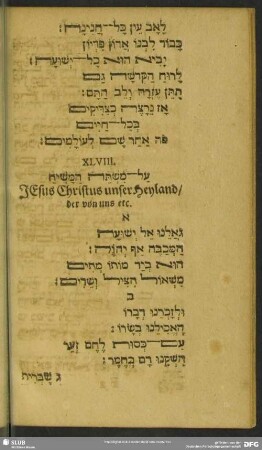 לָאָב עִין כָּל־חֲנִינָה:
כָּבוֹד לִבְנוֹ אָרוֹץ פִּדְיוֹן
יָבִיא הוּא כָל־יְשׁוּעָה:
לְרוּחַ הַקְּדֻשָּׁה גַּם
תִּתֵּן עֶזְרָה וְלֵב הַתָּם:
אָז נִרְצֶה כְצַדִּיקִים
בְּכָל־חַיִּים
פֹּה אַחַר שָׁם לְעוֹלָמִים:
XLVIII.
עַל־מִשְׁתֵּה הַמָּשִׁיחַ
JEsus Christus unser Heyland/
der von uns etc.
א
גֹּאֲלֵנוּ אֵל יְשׁוּעָה
הַמְכַבֶּה אַף יְהוָֹה:
הוּא בְּיַד מוֹתוֹ מֵתִים
מִשְּׁאוֹל הִצִּיל וְשֵׁדִים:
ב
וּלְזִכְרֵנוּ דְבָרוֹ
הֶאֱכִילָנוּ בְּשָׂרוֹ:
עִם־כְּסוּת לֶחֶם זְעֵר
הִשְׁקָנוּ דָם בְּחֶמֶר:
ג שֶׁבְּרִית
SLUB